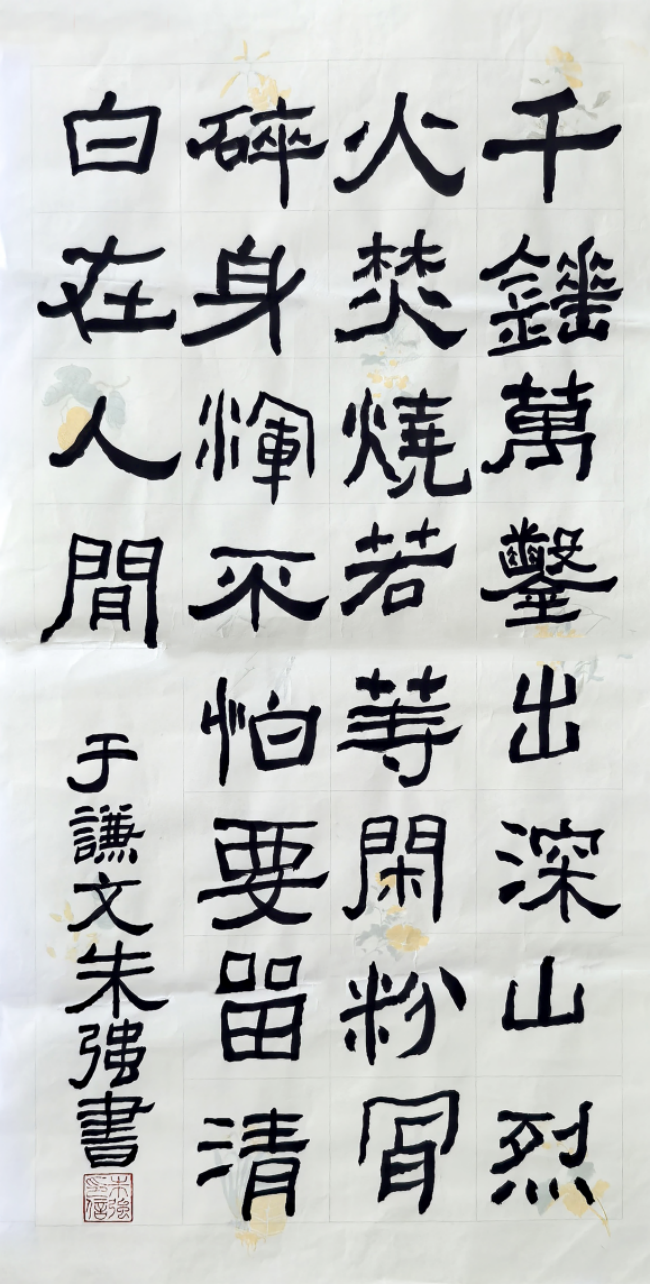 千錘萬鑿出深山烈
火焚燒若等閑粉骨
碎身渾不怕要留清
白在人間
于謙文朱強書
朱強印信